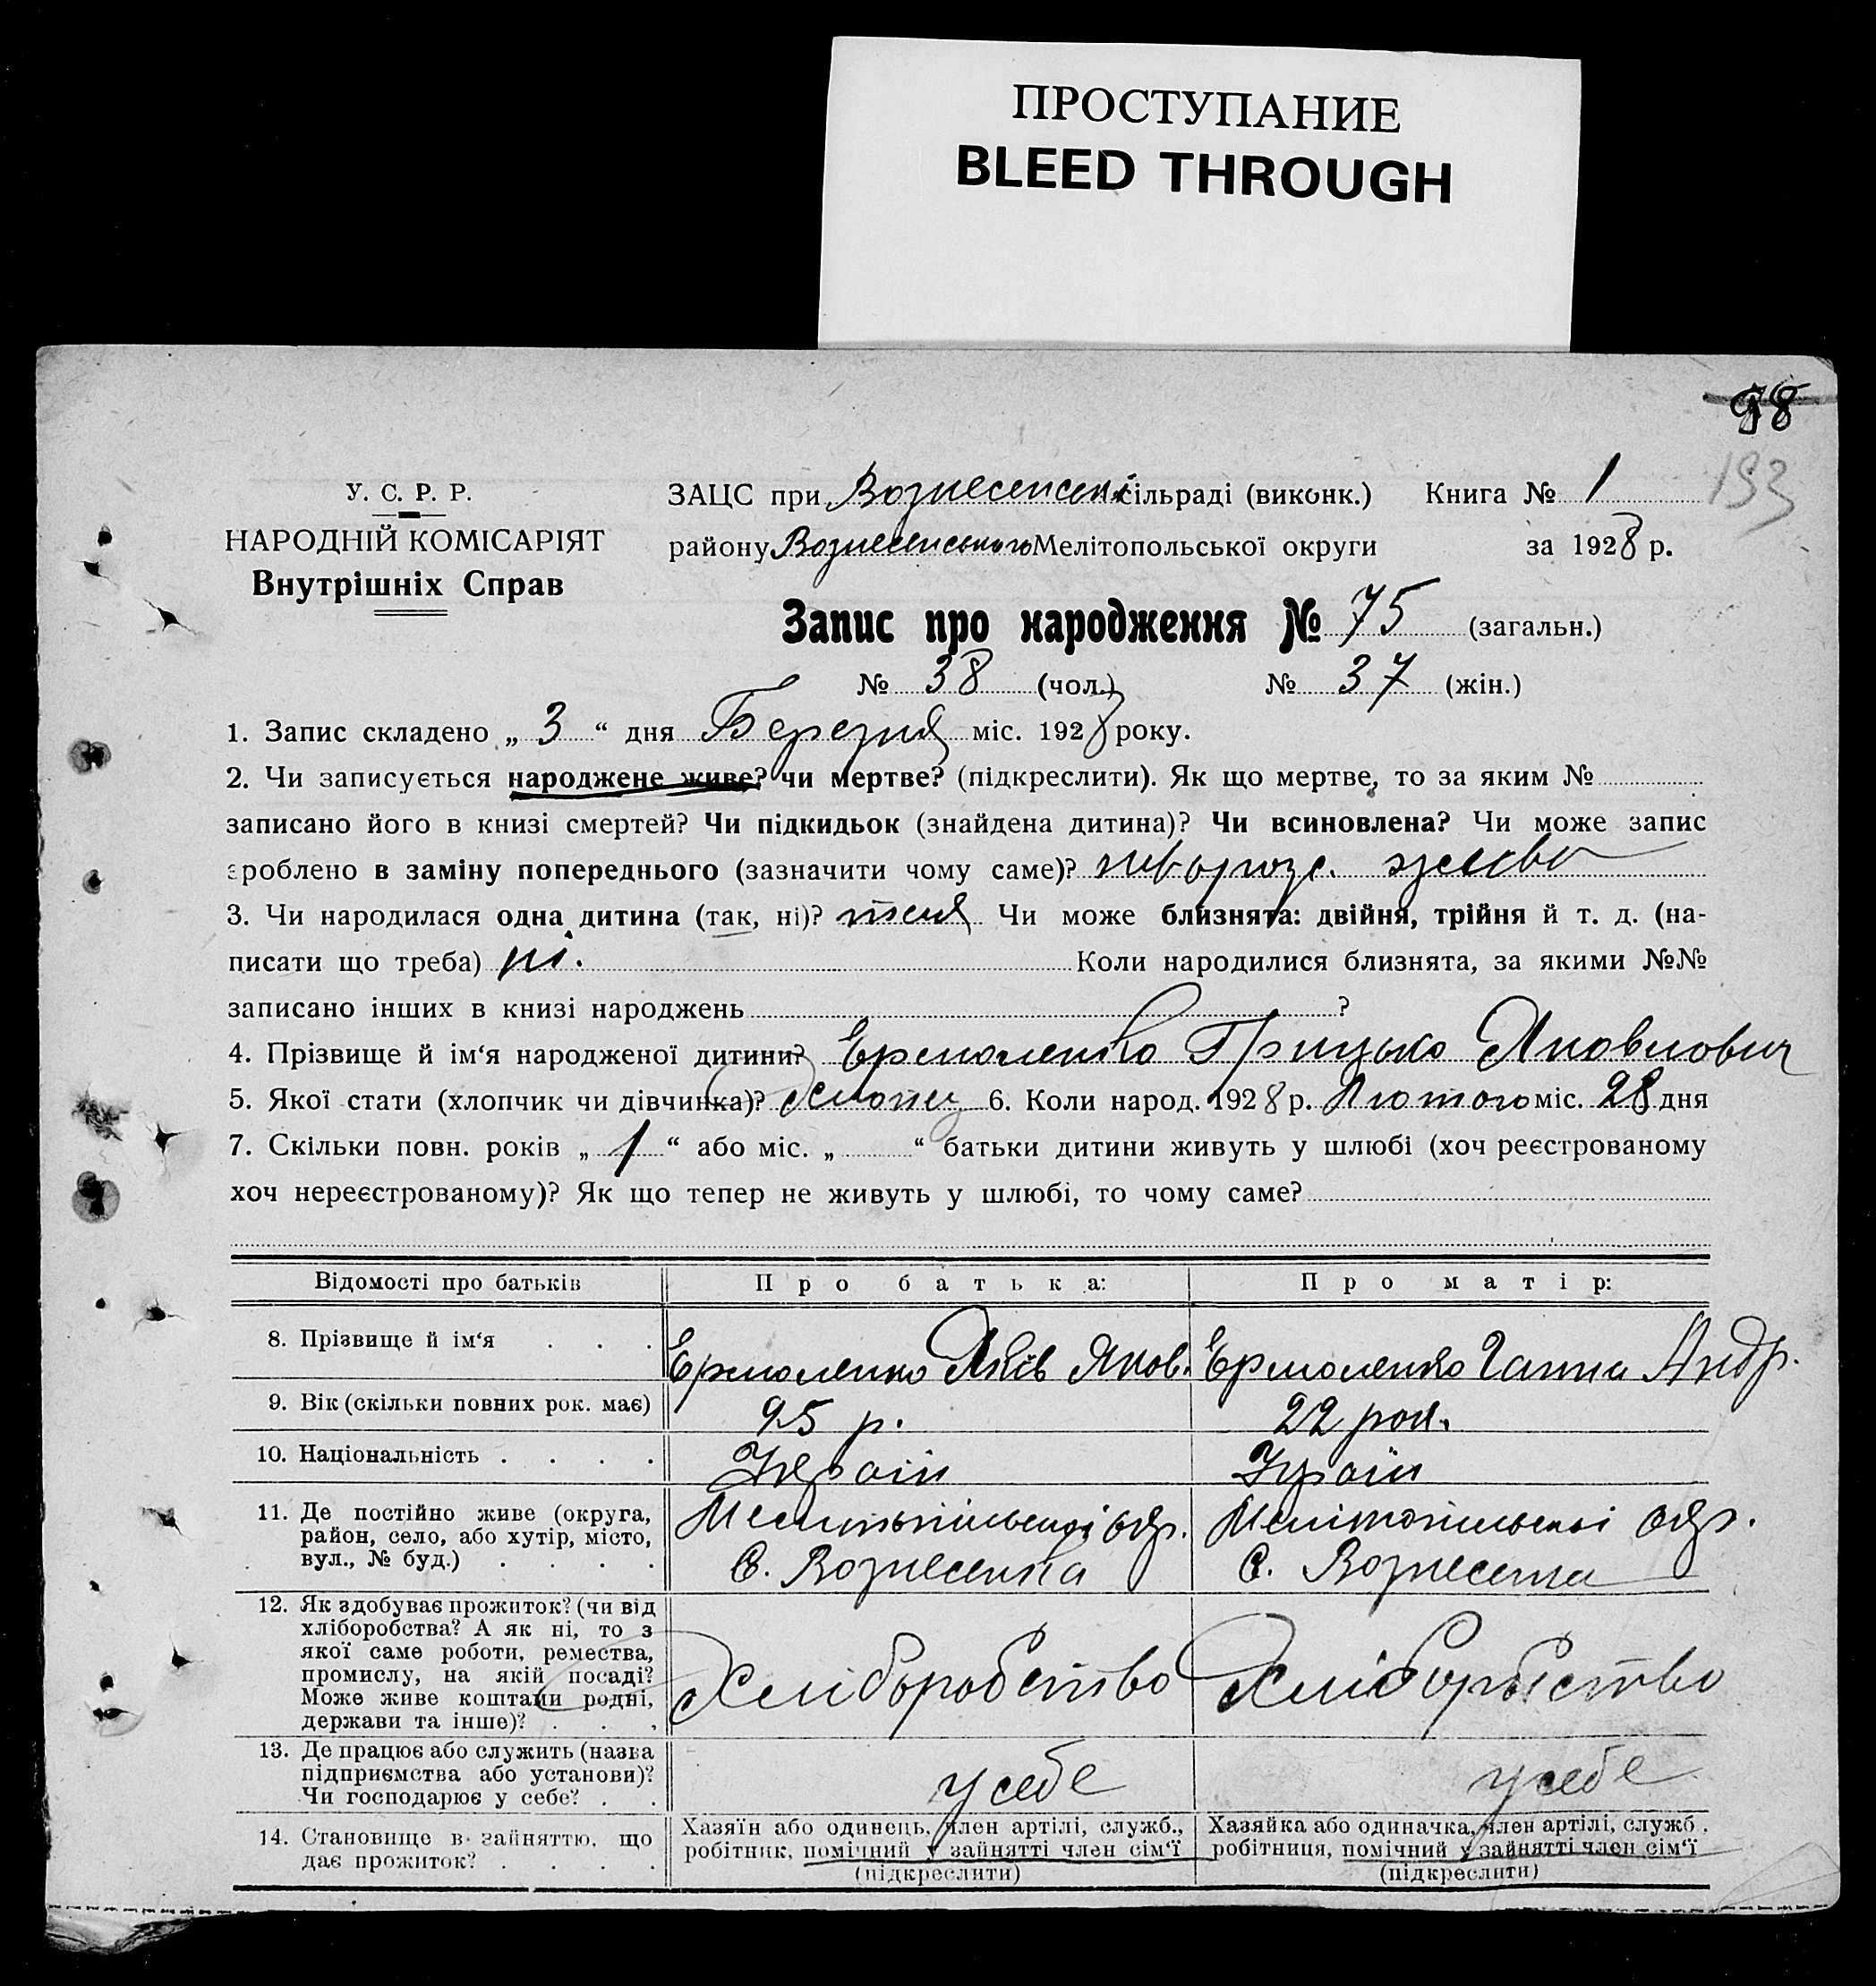 ПРОСТУПАНИЕ
BLEED THROUGH
98
193
У. С. Р. Р.
НАРОДНІЙ КОМІСАРІЯТ
Внутрішніх Справ
ЗАЦС при Вознесенській сільраді (виконк.) Книга № 1
району Вознесенського Мелітопольської округи за 1928 р.
Запис про народження № 75 (загальн.)
№ 38 (чол.) № 37 (жін.)
1. Запис складено „ 3 “ дня Березня міс. 1928 року.
2. Чи записується народжене живе? чи мертве? (підкреслити). Як що мертве, то за яким №
записано його в книзі смертей? Чи підкидьок (знайдена дитина)? Чи всиновлена? Чи може запис
зроблено в заміну попереднього (зазначити чому саме)?
3. Чи народилася одна дитина (так, ні)? Чи може близнята: двійня, трійня й т. д. (на-
писати що треба) ні. Коли народилися близнята, за якими №№
записано інших в книзі народжень ?
4. Прізвище й ім‘я народженої дитини? Ермоленко Грицько Яковлович
5. Якої стати (хлопчик чи дівчинка)? Хлопец 6. Коли народ. 1928 р. Лютого міс. 28 дня
7. Скільки повн. років „ 1 “ або міс. „ “ батьки дитини живуть у шлюбі (хоч реєстрованому
хоч нереєстрованому)? Як що тепер не живуть у шлюбі, то чому саме?
Відомості про батьків Про батька: Про матір:
8. Прізвище й ім‘я . . . Ермоленко Яків Яков. Ермоленко Ганна Андр.
9. Вік (скільки повних рок. має) 25 р. 22 рок.
10. Національність . . . . Україн Україн
11. Де постійно живе (округа,
район, село, або хутір, місто,
вул., № буд.) . . . .
Мелітопільської окр.
С. Вознесенка
Мелітопільскоі окр.
С. Вознесенка
12. Як здобуває прожиток? (чи від
хліборобства? А як ні, то з
якої саме роботи, ремества,
промислу, на якій посаді?
Може живе коштами родні,
держави та інше)? . . .
Хліборобство Хліборобство
13. Де працює або служить (назва
підприємства або установи)?
Чи господарює у себе? . .
у себе у себе
14. Становище в зайняттю, що
дає прожиток? . . . .
Хазяїн або одинець, член артілі, служб.,
робітник, помічний у зайнятті член сім‘ї
(підкреслити)
Хазяйка або одиначка, член артілі, служб.,
робітниця, помічний у зайнятті член сім‘ї
(підкреслити)